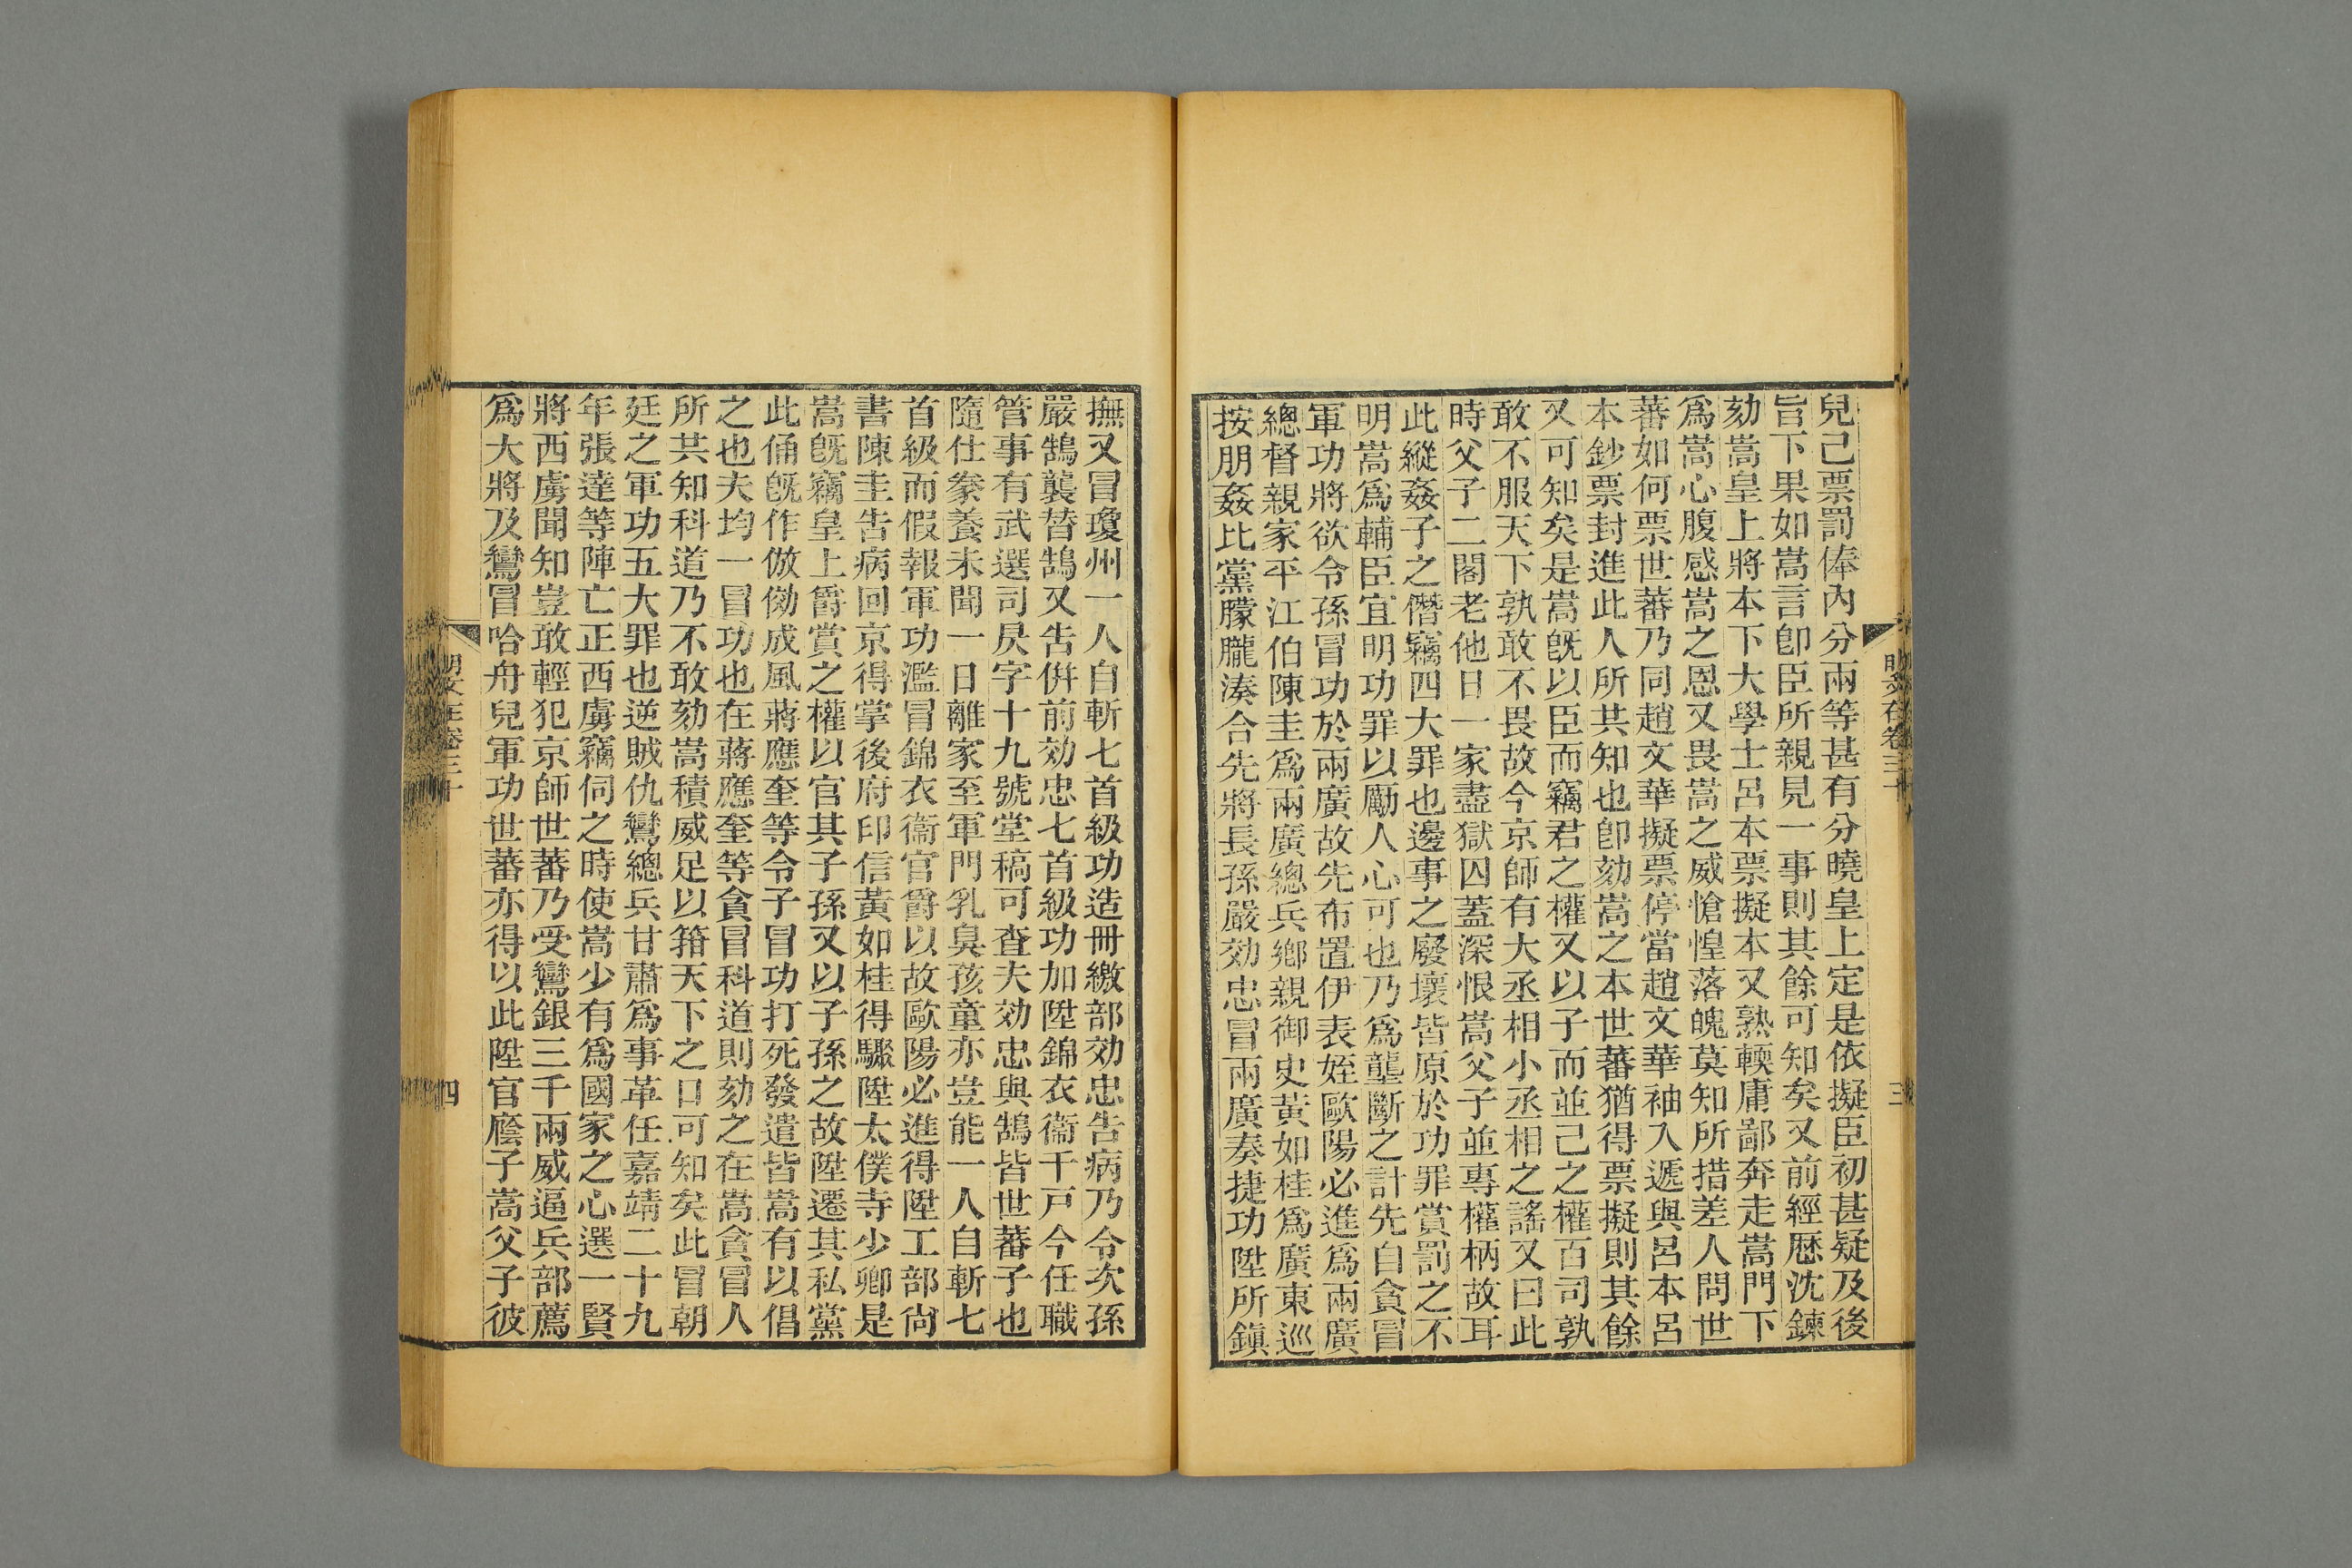 兒己票罰俸內分兩等甚有分曉皇上定是依擬臣初甚疑及後
旨下果如嵩言卽臣所親見一事則其餘可知矣又前經歷沈鍊
劾嵩皇上將本下大學士呂本票擬本又熟輭庸鄙奔走嵩門下
爲嵩心腹感嵩之恩又畏嵩之威愴惶落魄莫知所措差人問世
蕃如何票世蕃乃同趙文華擬票停當趙文華袖入遞與呂本呂
本鈔票封進此人所共知也卽劾嵩之本世蕃猶得票擬則其餘
又可知矣是嵩旣以臣而竊君之權又以子而並己之權百司孰
敢不服天下孰敢不畏故今京師有大丞相小丞相之謠又曰此
時父子二閣老他日一家盡獄囚蓋深恨嵩父子並專權柄故耳
此縱姦子之僭竊四大罪也邊事之廢壞皆原於功罪賞罰之不
明嵩爲輔臣宜明功罪以勵人心可也乃爲壟斷之計先自貪冒
軍功將欲令孫冒功於兩廣故先布置伊表姪歐陽必進爲兩廣
總督親家平江伯陳圭爲兩廣總兵鄉親御史黃如桂爲廣東巡
按朋姦比黨朦朧湊合先將長孫嚴効忠冒兩廣奏捷功陞所鎭
明文在卷三十
三
撫又冒瓊州一人自斬七首級功造冊繳部効忠告病乃令次孫
嚴鵠襲替鵠又告併前効忠七首級功加陞錦衣衞千戸今任職
管事有武選司昃字十九號堂稿可查夫効忠與鵠皆世蕃子也
隨仕豢養未聞一日離家至軍門乳臭孩童亦豈能一人自斬七
首級而假報軍功濫冒錦衣衞官爵以故歐陽必進得陞工部尙
書陳圭告病回京得掌後府印信黃如桂得驟陞太僕寺少卿是
嵩旣竊皇上爵賞之權以官其子孫又以子孫之故陞遷其私黨
此俑旣作倣傚成風蔣應奎等令子冒功打死發遣皆嵩有以倡
之也夫均一冒功也在蔣應奎等貪冒科道則劾之在嵩貪冒人
所共知科道乃不敢劾嵩積威足以箝天下之口可知矣此冒朝
廷之軍功五大罪也逆賊仇鸞總兵甘肅爲事革任嘉靖二十九
年張達等陣亡正西虜竊伺之時使嵩少有爲國家之心選一賢
將西虜聞知豈敢輕犯京師世蕃乃受鸞銀三千兩威逼兵部薦
爲大將及鸞冒哈舟兒軍功世蕃亦得以此陞官廕子嵩父子彼
明文在卷三十
四